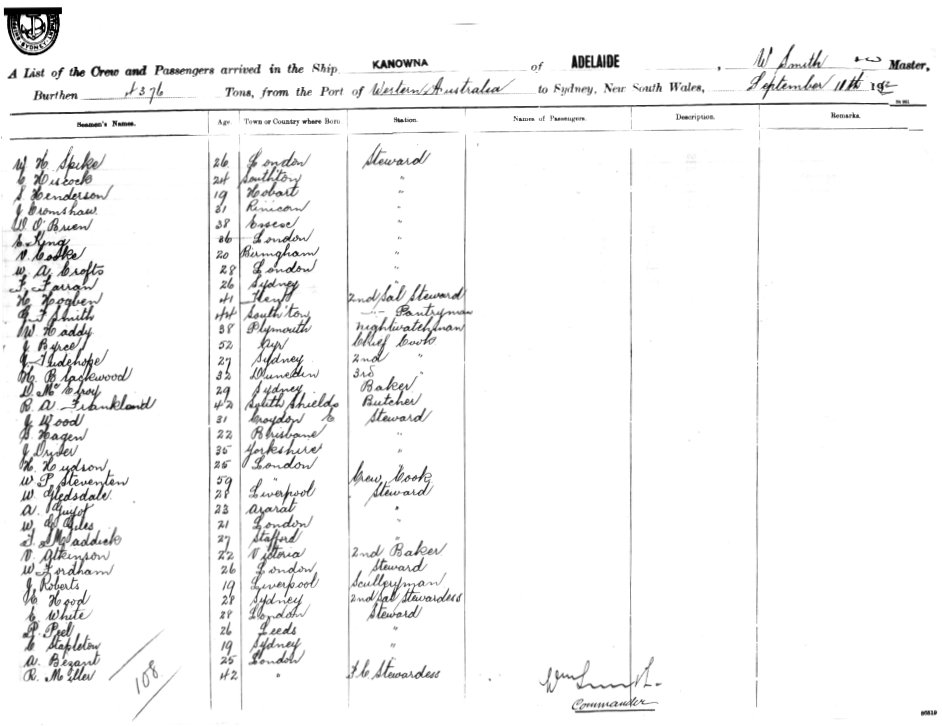 A List of the Crew and Passengers arrived in the Ship KANOWNA of ADELAIDE, W Smith Master,
Burthen Tons, from the Port of Western Australia to Sydney, New South Wales, September 11th 19
Seamen's Names. Age. Town or Country where Born Station. Names of Passengers. Description. Remarks.
W H Spike 26 London Steward
C Hiscock 24 South'ton "
S Henderson 19 Hobart "
J Cromshaw 31 "
W O'Brien 38 Essex "
E King 36 London "
V. Cooke 20 Birmgham "
W. A. Crofts 28 London "
F. Farran 26 Sydney "
H Hogben 41 Kent 2nd Sal Steward
G F Smith 44 South'ton -"- Pantryman
W. Haddy 38 Plymouth Nightwatchman
J Byrce 52 Ayr Chief Cook
J Tudehope 27 Sydney 2nd "
H. Blackwood 32 Dunedin 3rd "
D. McElroy 29 Sydney Baker
R. A. Frankland 42 South Shields Butcher
J Wood 31 Croydon E Steward
S. Hagen 22 Brisbane "
J Dryder 35 Yorkshire "
H. Hudson 25 London "
W P. Steventen 59 " Crew Cook
W. Gledsdale 28 Liverpool Steward
A. Guyot 23 Ararat "
W. G Giles 21 London "
F. Maddick 27 Stafford "
V. Atkinson 22 Victoria 2nd Baker
W Fordham 26 London Steward
J Roberts 19 Liverpool Sculleryman
Hood 28 Sydney 2nd Sal Stewardess
C White 28 London Steward
P. Peel 26 Leeds "
C Stapleton 19 Sydney "
A. Bezant 25 London
R. Miller 42 " F.C Stewardess
108
Wm Smith.
Commander